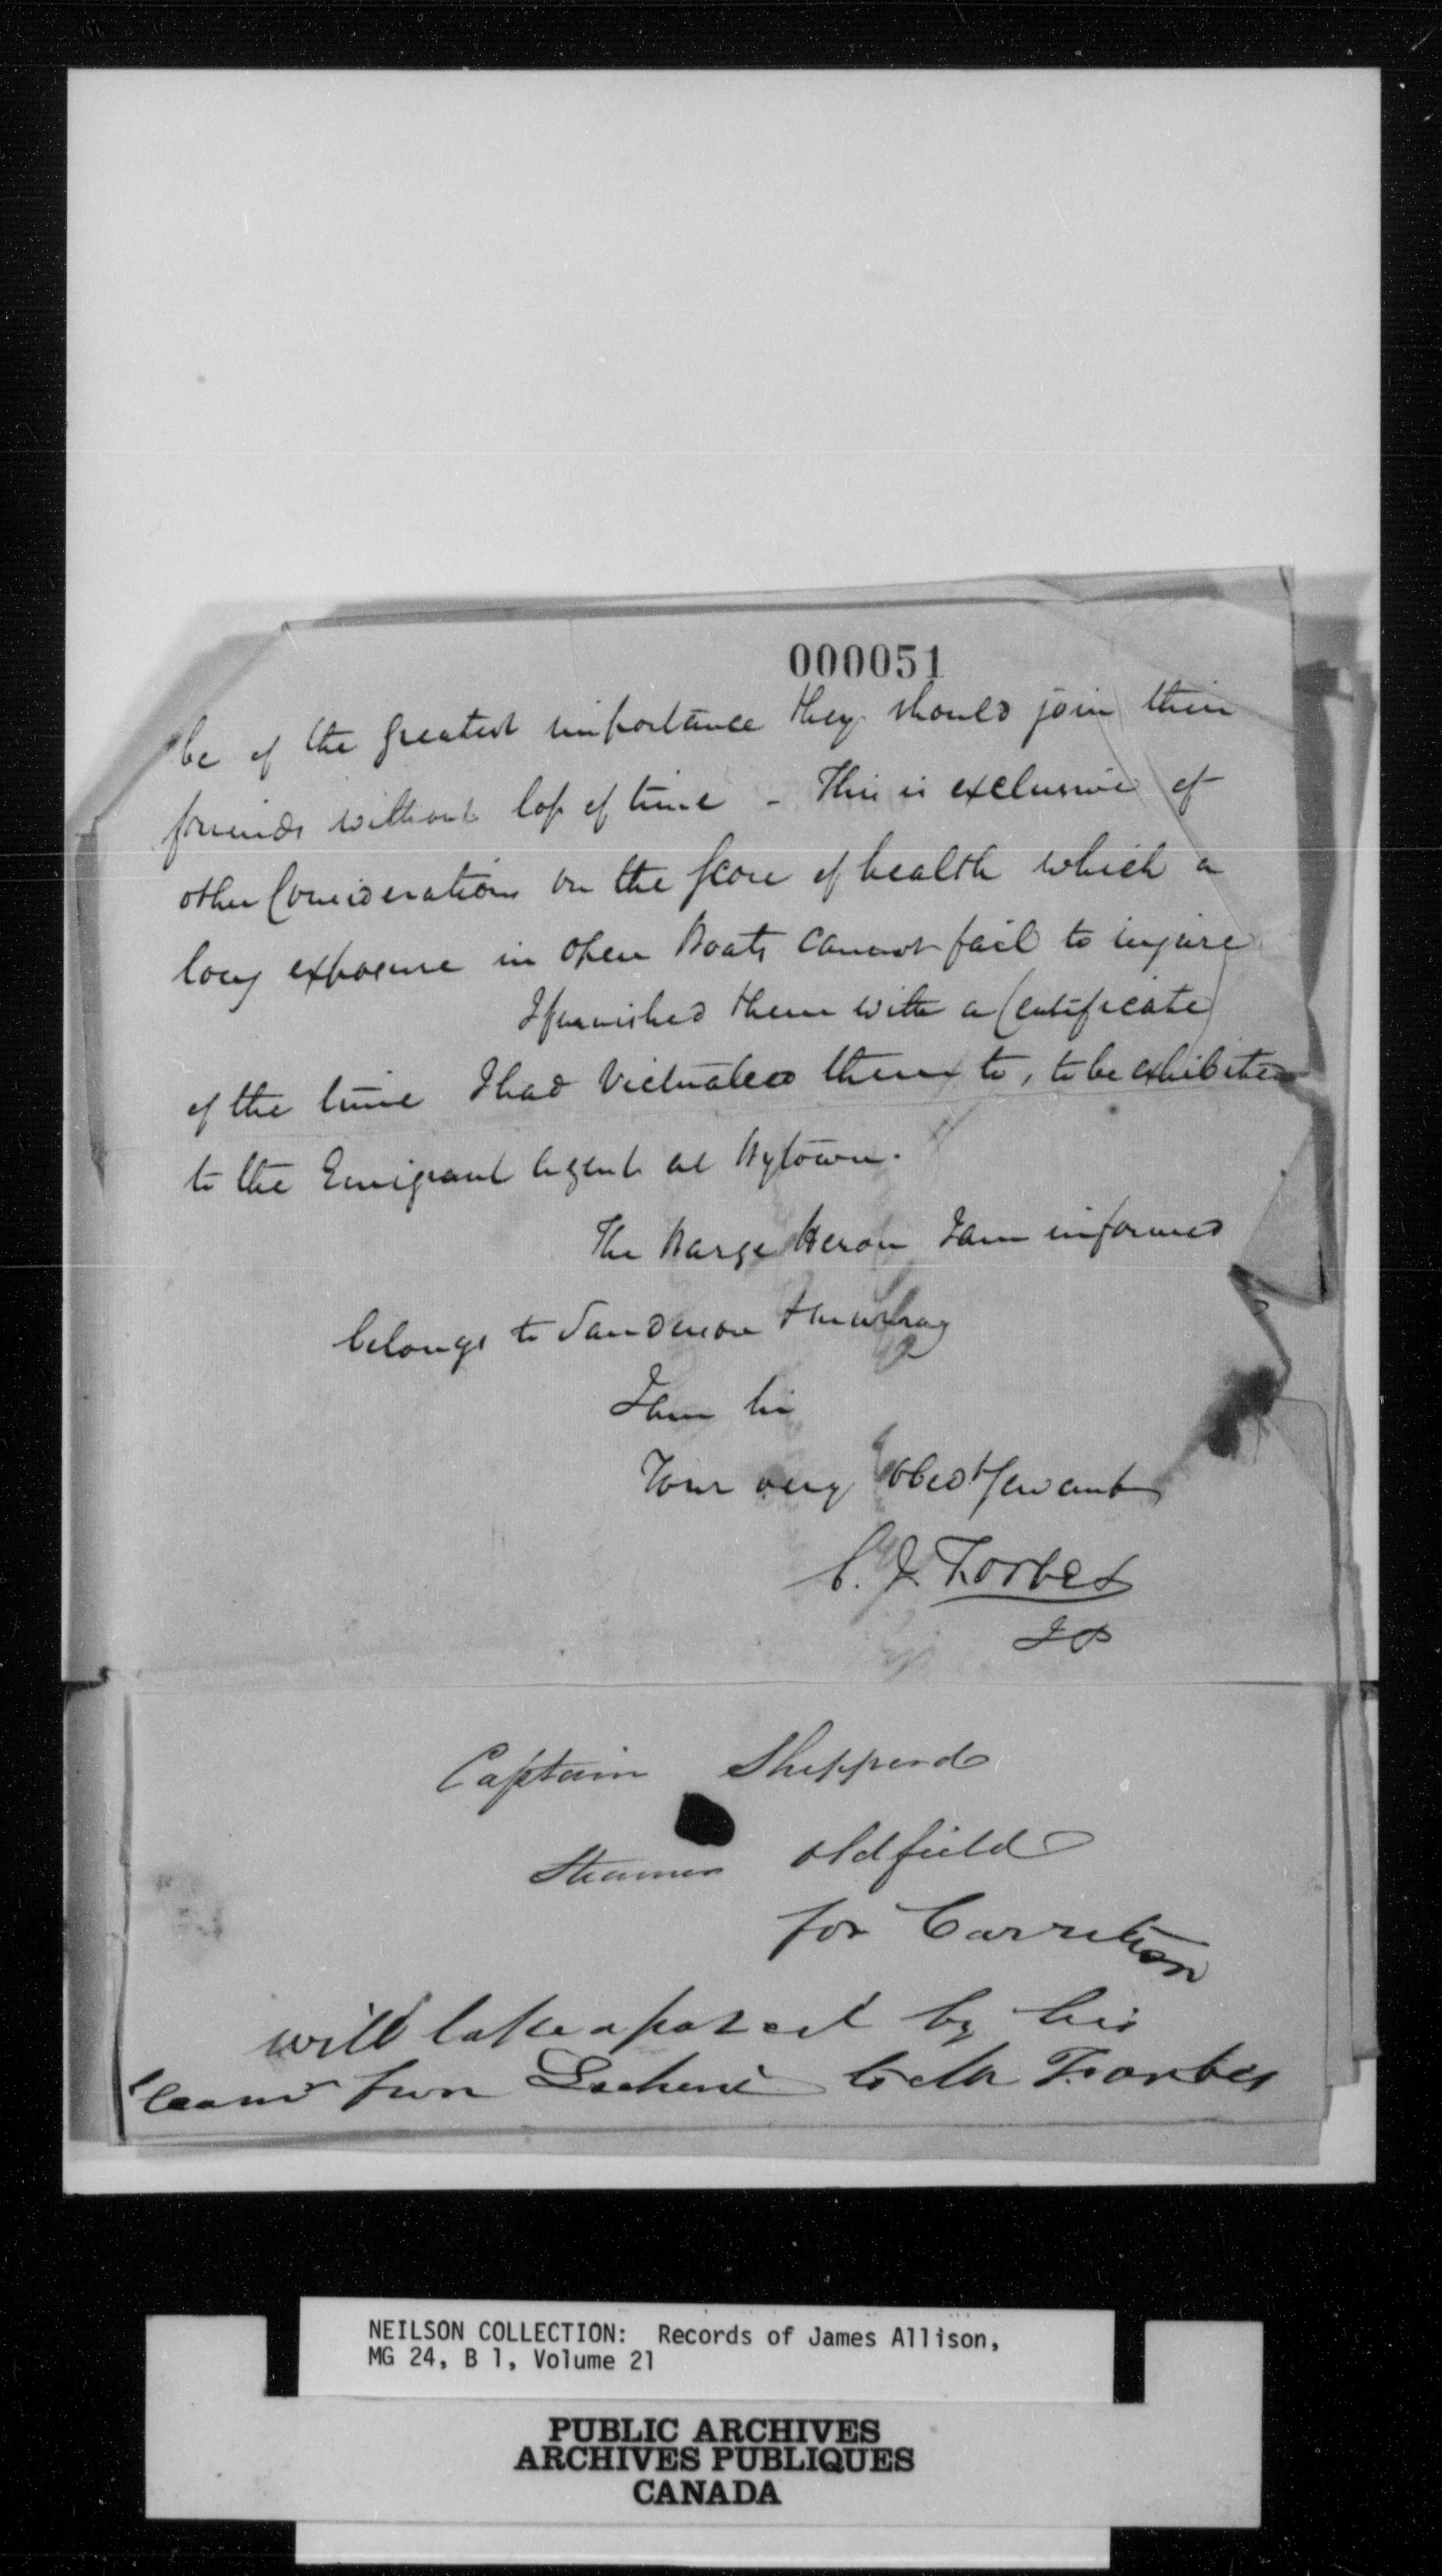 000051
be of the greatest importance they should join their
friends without loss of time - This is exclusive of
other Considerations on the score of health which a
long exposure in open Boats cannot fail to injure
I furnished them with a Certificate
of the time I had Victualled them to, to be exhibited
to the Emigrant Agent at Bytown.
The Barge Heron I am informed
belongs to Sanderson & Murray
I am Sir
Your very obedt Servant
C. J. Forbes
JP
Captain Shepperd
Steamer oldfield
for Carrillion
will take a parcel by his
from Lachine to Mr Forbes
NEILSON COLLECTION: Records of James Allison,
MG 24, B 1, Volume 21
PUBLIC ARCHIVES
ARCHIVES PUBLIQUES
CANADA